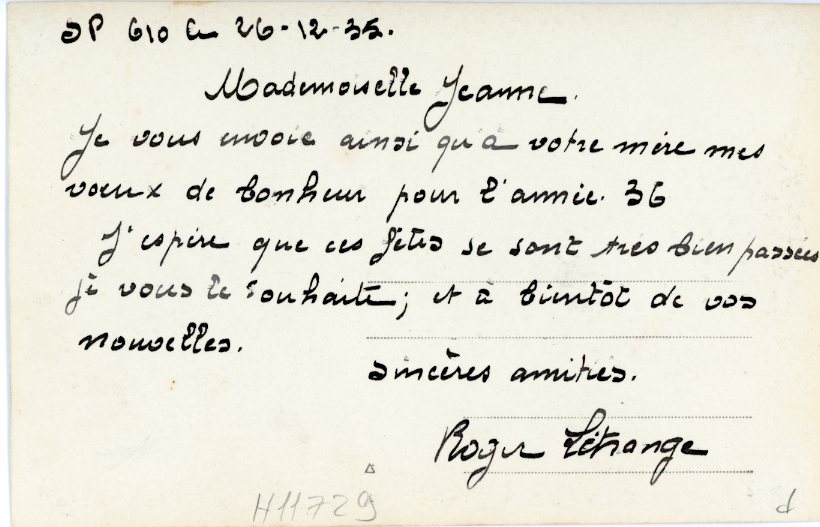 SP 610 le 26-12-35.
Mademoiselle Jeanne.
Je vous envoie ainsi qu'à votre mère mes
vœux de bonheur pour l'année. 36
J'espère que ces fêtes se sont très bien passées
je vous le souhaite; et à bientôt de vos
nouvelles.
Sincères amitiés.
Roger Létrange
H11729
d